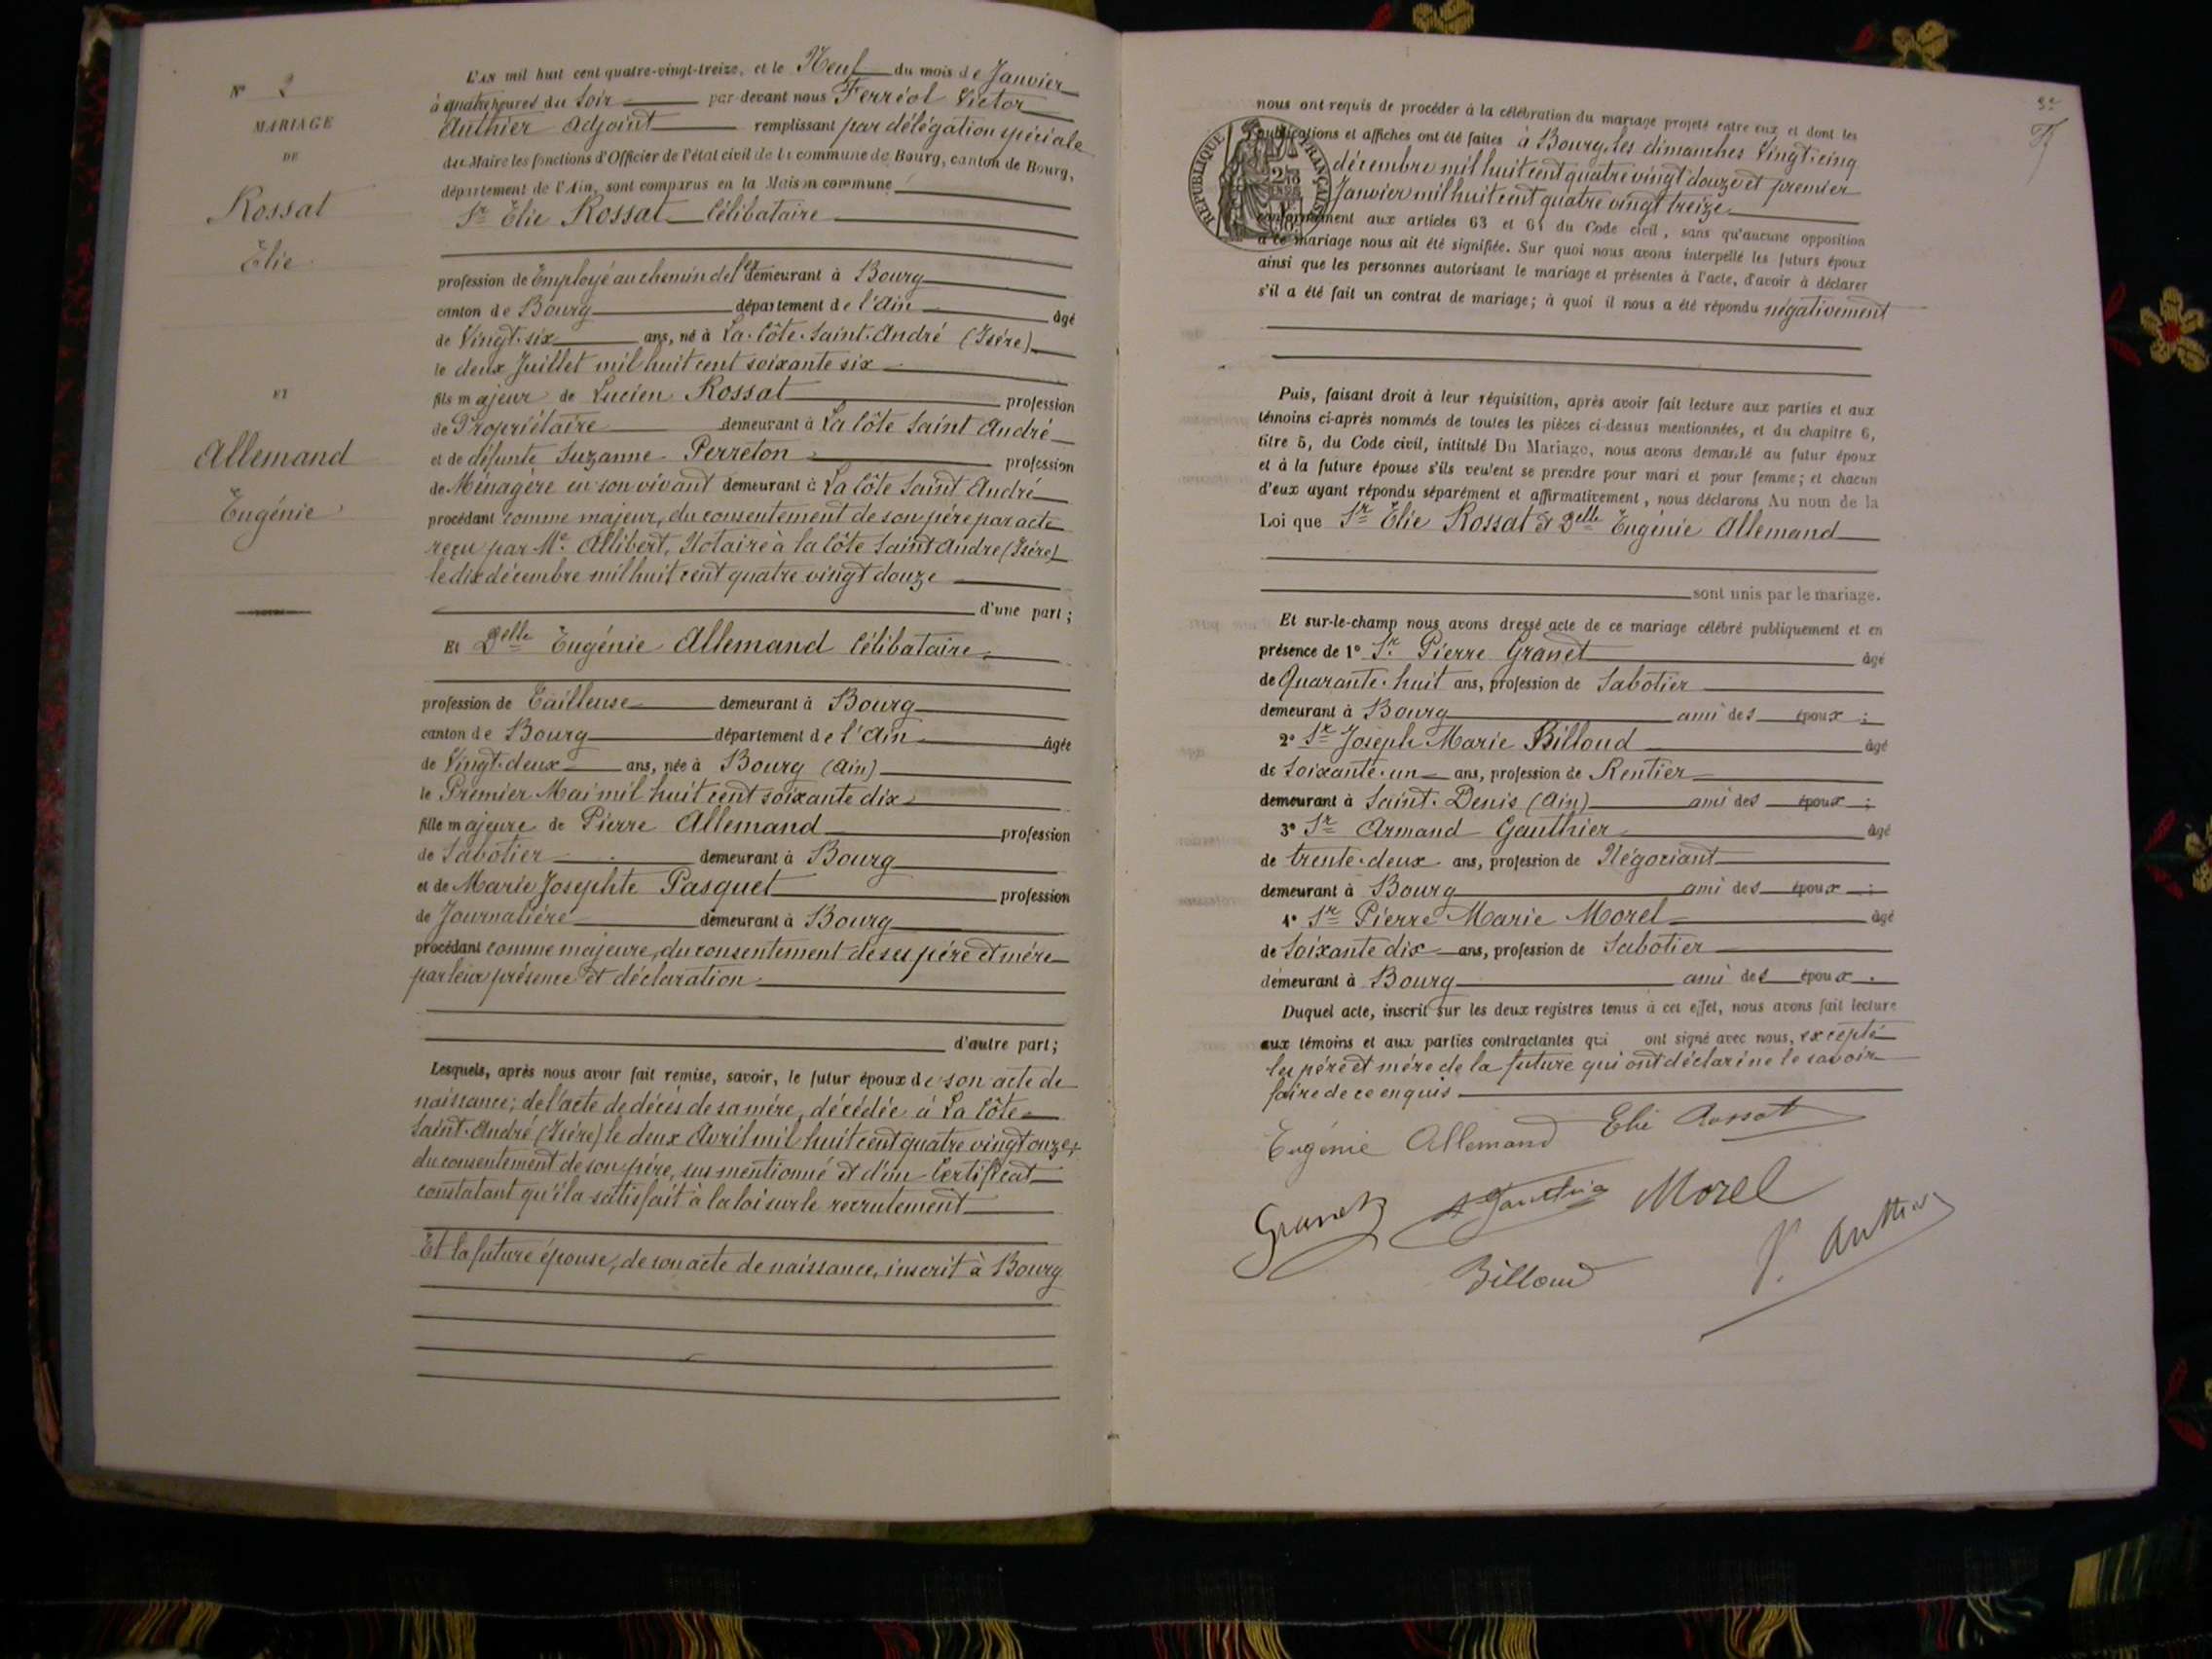 N° 2
MARIAGE
DE
Rossat
Élie
ET
Allemand
Eugénie
L'AN mil huit cent quatre-vingt-treize, et le Neuf du mois de Janvier
à quatre heures du Soir par-devant nous Ferréol Victor
Authier Adjoint remplissant par délégation spéciale
du Maire les fonctions d'Officier de l'état civil de la commune de Bourg, canton de Bourg,
département de l'Ain, sont comparus en la Maison commune
Sr Élie Rossat Célibataire
profession de Employé au chemin de fer demeurant à Bourg
canton de Bourg département de l'Ain âgé
de Vingt-six ans, né à La Côte-Saint-André (Isère)
le deux Juillet mil huit cent soixante six
fils majeur de Lucien Rossat profession
de Propriétaire demeurant à La Côte Saint André
et de défunte Suzanne Perreton profession
de Ménagère en son vivant demeurant à La Côte Saint André
procédant comme majeur, du consentement de son père par acte
reçu par Me Allibert, Notaire à la Côte Saint André (Isère)
le dix décembre mil huit cent quatre vingt douze
d'une part;
Et Delle Eugénie Allemand Célibataire
profession de Tailleuse demeurant à Bourg
canton de Bourg département de l'Ain âgée
de Vingt-deux ans, née à Bourg (Ain)
le Premier Mai mil huit cent soixante dix
fille majeure de Pierre Allemand profession
de Sabotier demeurant à Bourg
et de Marie Josephte Pasquet profession
de Journalière demeurant à Bourg
procédant comme majeure, du consentement de ses père et mère
par leur présence et déclaration
d'autre part;
Lesquels, après nous avoir fait remise, savoir, le futur époux de son acte de
naissance; de l'acte de décès de sa mère, décédée à La Côte
Saint-André (Isère) le deux Avril mil huit cent quatre vingt onze;
du consentement de son père, sus mentionné et d'un Certificat
constatant qu'il a satisfait à la loi sur le recrutement
Et la future épouse, de son acte de naissance, inscrit à Bourg
nous ont requis de procéder à la célébration du mariage projeté entre eux et dont les
publications et affiches ont été faites à Bourg, les dimanches Vingt-cinq
décembre mil huit cent quatre vingt douze et premier
Janvier mil huit cent quatre vingt treize
conformément aux articles 63 et 64 du Code civil, sans qu'aucune opposition
à ce mariage nous ait été signifiée. Sur quoi nous avons interpellé les futurs époux
ainsi que les personnes autorisant le mariage et présentes à l'acte, d'avoir à déclarer
s'il a été fait un contrat de mariage; à quoi il nous a été répondu négativement
RÉPUBLIQUE FRANÇAISE
Puis, faisant droit à leur réquisition, après avoir fait lecture aux parties et aux
témoins ci-après nommés de toutes les pièces ci-dessus mentionnées, et du chapitre 6,
titre 5, du Code civil, intitulé Du Mariage, nous avons demandé au futur époux
et à la future épouse s'ils veulent se prendre pour mari et pour femme; et chacun
d'eux ayant répondu séparément et affirmativement, nous déclarons Au nom de la
Loi que Sr Élie Rossat et Delle Eugénie Allemand
sont unis par le mariage.
Et sur-le-champ nous avons dressé acte de ce mariage célébré publiquement et en
présence de 1° Sr Pierre Granet âgé
de Quarante-huit ans, profession de Sabotier
demeurant à Bourg ami des époux;
2° Sr Joseph Marie Billoud âgé
de Soixante-un ans, profession de Rentier
demeurant à Saint-Denis (Ain) ami des époux;
3° Sr Armand Gauthier âgé
de trente-deux ans, profession de Négociant
demeurant à Bourg ami des époux;
4° Sr Pierre Marie Morel âgé
de Soixante dix ans, profession de Sabotier
demeurant à Bourg ami des époux.
Duquel acte, inscrit sur les deux registres tenus à cet effet, nous avons fait lecture
aux témoins et aux parties contractantes qui ont signé avec nous, excepté
les père et mère de la future qui ont déclaré ne le savoir
faire de ce enquis
Eugénie Allemand Elie Rossat
Granet A Gauthier Morel
Billoud V. Authier